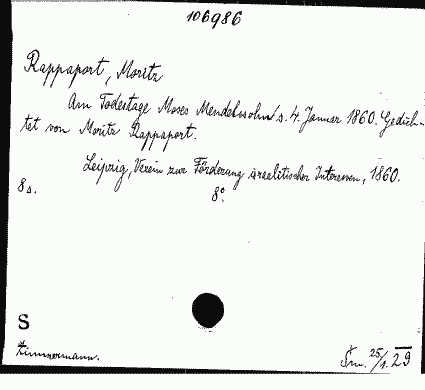 106986
Rappaport, Moritz
Am Todestage Moses Mendelssohn's. 4. Januar 1860. Gedich-
tet von Moritz Rappaport.
Leipzig, Verein zur Förderung israelitischer Interessen, 1860.
8 s. 8°.
S
Zimmermann. Šm. 25/1. 29